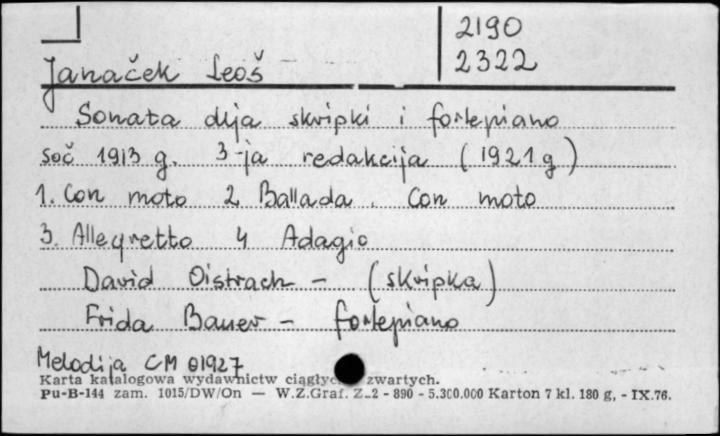 2190
2322
Janaček Leoš
Sonata dlja skripki i fortepiano
soč 1913 g. 3-ja redakcija (1921 g)
1. Con moto 2 Ballada. Con moto
3. Allegretto 4 Adagio
David Oistrach - (skripka)
Frida Bauer - fortepiano
Melodija CM 01927
Karta katalogowa wydawnictw zwartych.
Pu-B-144 zam. 1015/DW/On — W.Z.Graf. Z.2 - 890 - 5.300.000 Karton 7 kl. 180 g, - IX.76.